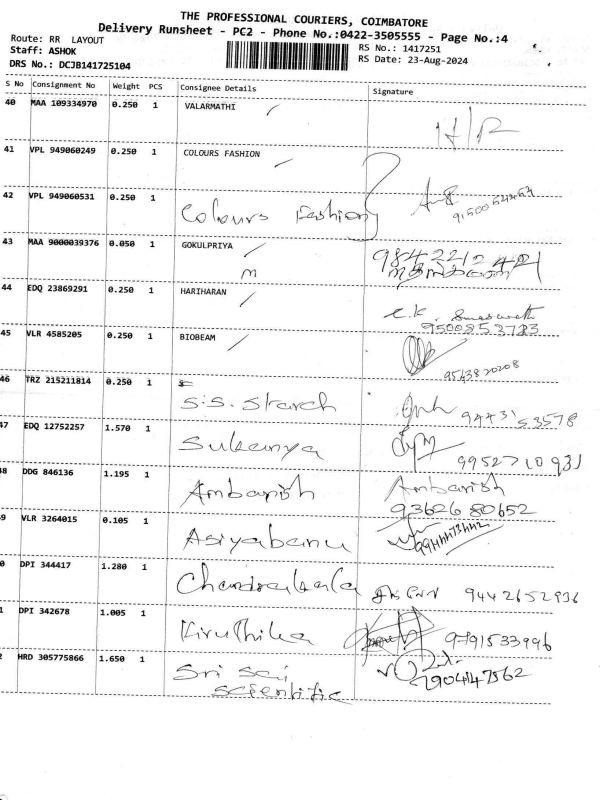 THE PROFESSIONAL COURIERS, COIMBATORE
Delivery Runsheet - PC2 - Phone No.:0422-3505555 - Page No.:4
Route: RR LAYOUT
Staff: ASHOK
DRS No.: DCJB141725104
RS No.: 1417251
RS Date: 23-Aug-2024
S No Consignment No Weight PCS Consignee Details Signature
40 MAA 109334970 0.250 1 VALARMATHI
41 VPL 949060249 0.250 1 COLOURS FASHION
42 VPL 949060531 0.250 1 Colours Fashion
43 MAA 9000039376 0.050 1 GOKULPRIYA 9842212421
m
44 EDQ 23869291 0.250 1 HARIHARAN
9500853723
45 VLR 4585205 0.250 1 BIOBEAM
9543820208
46 TRZ 215211814 0.250 1 S.S. Starch 94431 53578
47 EDQ 12752257 1.570 1 Sukanya
9952710931
48 DDG 846136 1.195 1 Ambarish Ambarish
93626 80652
9 VLR 3264015 0.105 1 Asiyabanu
0 DPI 344417 1.280 1 Chandrakala 9442652936
1 DPI 342678 1.005 1 Kiruthika 9791533996
2 HRD 305775866 1.650 1 Sri Sai
Scientific 7904147562